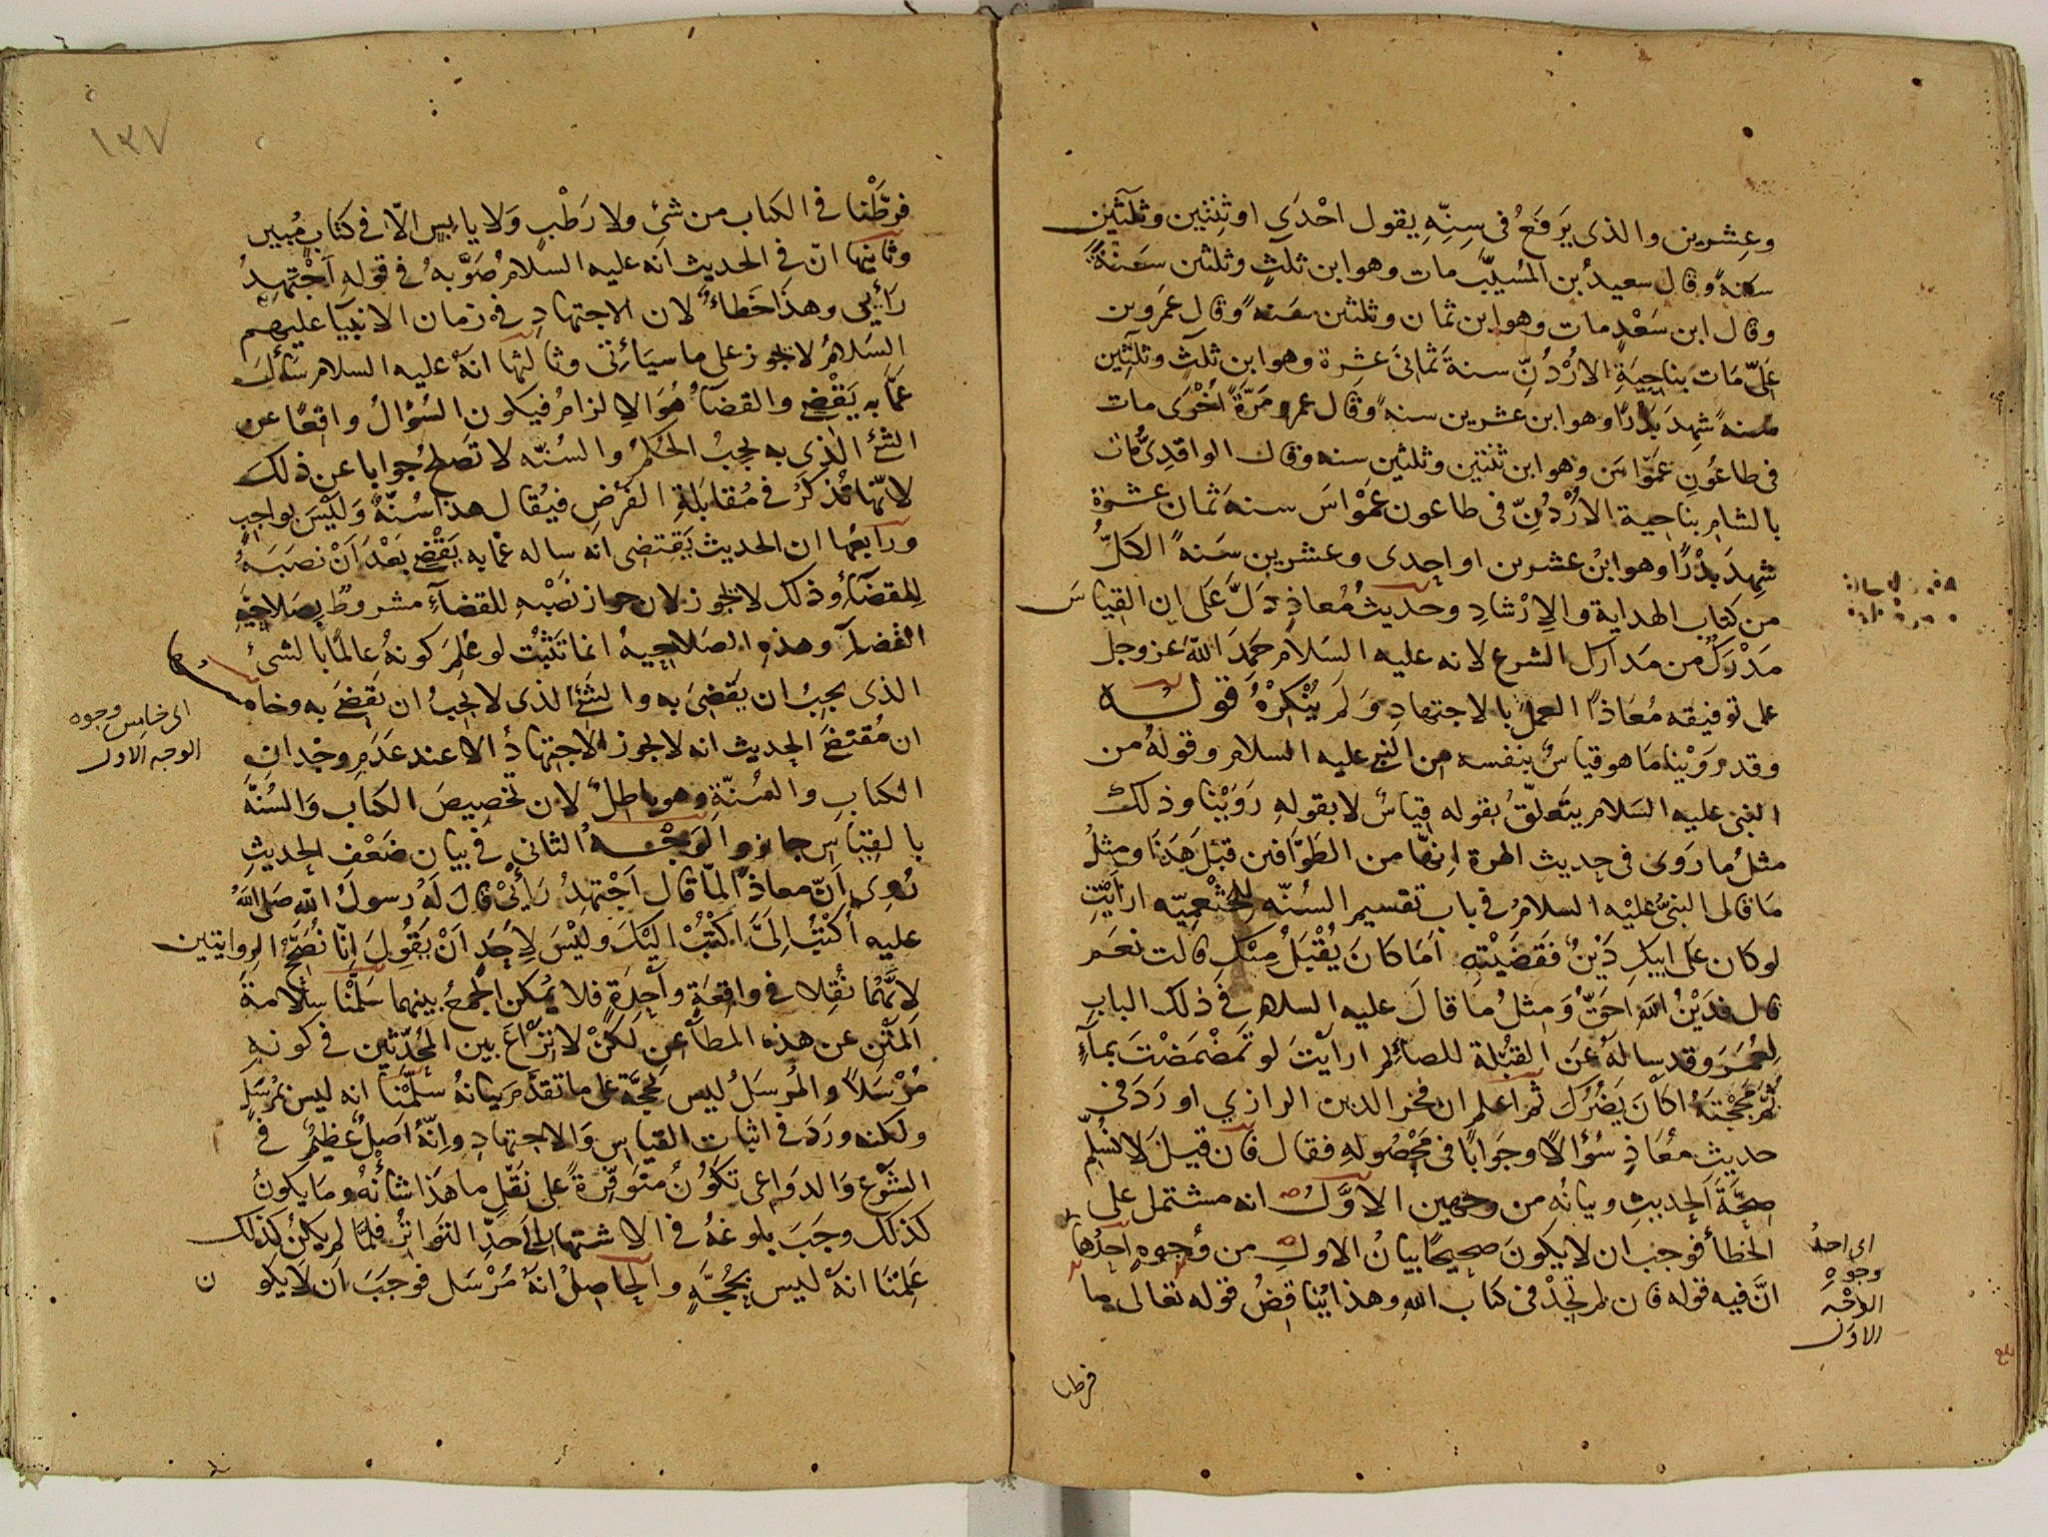 وعِشرين والذى يَرفَعُ فى سِنِّهِ يقول احْدَى او ثِنتين وثلثين
سنةً وقال سعيدُ بن المُسيَّب مات وهو ابن ثلثٍ وثلثين سَنَةً
وقال ابن سَعْدٍ مات وهو ابن ثمان وثلثين سنه وقال عَمرو بن
عَلىّ مَاتَ بناحِيَةِ الارْدُنِّ سنةَ ثمانىَ عَشِرة وهو ابن ثلثٍ وثلثين
سنه شهِدَ بَدْرًا وهو ابن عشرين سنه وقال عمرو مَرَّةً أُخْرَى مات
فى طاعُونِ عَمَواس وهو ابن ثنتين وثلثين سنه وقال الواقدىُّ مات
بالشام بناحية الارْدُنِّ فى طاعون عَمْواسَ سنة ثمان عشرة
شهِدَ بَدْرًا وهو ابْنُ عشرين او احدى وعشرين سَنةً الكلُّ
من كتاب الهداية والارْشادِ وحديثُ مُعاذٍ دَلَّ عَلى ان القياسَ
مَدْرَكٌ من مَدارك الشرع لانه عليه السَلام حَمِدَ اللّهَ عز وجل
على توفيقه مُعَاذًا العملَ بالاجتهادِ وَلَم يُنْكِرْهُ قوله
وقد رَوَيْنا مَا هو قياسٌ بنفسه من النبى عليه السلام وقولهُ من
النبى عليه السَلام يتَعلّقُ بقوله قياسٌ لا بقولهِ رَوَيْنا وذلك
مثلُ ما رَوَى فى حديث الهرة انها من الطَوَّافين قبْلَ هَذَا ومثلُ
مَا قال النبىُّ عليْه السلامُ فى باب تقسيم السُنّه للخثْعميّه ارايْتِ
لو كان عَلى ابيكِ دَيْنٌ فقَضَيْتِهِ اَمَا كَانَ يُقْبَلُ مِنْكِ قالت نعَم
قال فدَيْنُ اللهِ احَقُّ وَمثلُ مَا قالَ عليه السلام فى ذلك الباب
لِعُمَرَ وقد ساله عَنَ القُبْلة للصائم ارايْتَ لو تمَضْمَضْتَ بماءٍ
ثمَّ مَجَجْتَهُ اكَانَ يَضُرُّكَ ثُم اعلم ان فخر الدين الرازي اورَدَ فى
حديث مُعَاذٍ سُؤالًا وجَوابًا فى مَحْصُولهِ فقال فان قيلَ لا نُسَلِّم
صِحَّةَ الحديثِ وبيانُه من وجهين الاوَّلُ انه مشتمل على
الخطأ فوجبَ ان لا يكونَ صحيحًا بيانُ الاول من وُجوهٍ احدُها
انَّ فيه قوله فان لم تجدْ فى كتاب اللهِ وهذا يُناقِضُ قوله تعالى ما
اى احدُ
وجوه
الوَجْه
الاول
فرطنا
١٣٧
فرطّنا فى الكتاب من شئ ولا رَطْبٍ وَلا يابسٍ الّا فى كتابٍ مُبين
وثانيها انّ فى الحديث انه عليه السلام صَوَّبهُ فى قوله اَجْتهدُ
رَأيى وهذا خَطاءٌ لان الاجتهادِ فى زمان الانبيآء عليهم
السَلامُ لا يجوز على ما سيَأتى وثالثها انهُ عليه السلام سَألهُ
عمَّا به يَقْضى والقضآءُ هُوَ الالزامُ فيكون السُؤالُ واقعًا عن
الشئ الَذِى به يجبُ الحُكمُ والسُنّه لا تَصلحُ جوابا عن ذلك
لانّها تُذكرُ فى مُقابَلةِ الفَرْضِ فيُقال هذا سُنّةٌ وَليْسَ بواجبٍ
ورابعُها ان الحديث يَقتضى انه ساله عمَّا به يَقْضى بَعْدَ اَنْ نصَبَهُ
لِلقضَآءِ وذلك لا يجوز لان جواز نَصْبهِ للقضاءِ مشروطٌ بصَلاحِيَّةِ
القضآءِ وهذه الصَلاحيهُ انما تثبُتُ لو عُلمَ كونهُ عالمًا بالشئ
الذى يجبُ ان يَقضىَ به والشئِ الذى لا يجبُ ان يَقضىَ به وخامسها
ان مُقتضَى الحديث انه لا يجوز الاجتهادُ الا عند عَدَمِ وجْدانِ
الكتابِ والسُنّةِ وهو باطلٌ لان تخصيصَ الكتاب وَالسُنّة
بالقياس جائز والوَجْهُ الثانى فى بيان ضَعْفِ الحديث
رُوِى اَنّ معاذًا لمّا قال اَجْتهدُ رَأْيىْ قالَ لَهُ رسولُ الله صَلى اللهُ
عليه اُكتُبْ اِلىَّ اكتُبْ اليْكَ وليْسَ لاِحَدٍ اَنْ يَقُولَ انّا نُصَحِّحُ الروايتين
لانَّهُما نُقِلا فى واقعَةٍ واحِدةٍ فلا يُمكن الجمعُ بينهما سَلّمْنا سلامةَ
المَتْنِ عن هذه المطاعن لكنْ لا نِزاعَ بين المُحَدّثين فى كونه
مُرْسَلًا والمُرسَلُ ليس بحُجَّة على ما تقدَّمَ بيانهُ سَلّمْنا انه ليس بمُرسَلٍ
ولكنه ورَدَ فى اثبات القياس وَالاجتهادِ وانّهُ اَصلٌ عظيمٌ فى
الشَرْعِ وَالدواعى تكُونُ متوفّرةً على نَقْلِ ما هذا شأنُهُ وما يكونُ
كذلك وجَبَ بلوغهُ فى الاشتهار الى حَدِّ التواتُرِ فلمّا لم يكنْ كذلك
عَلمْنا انهُ ليس بحُجَّةٍ والحاصِلُ انهُ مُرْسَل فوجَبَ ان لا يكون
اى خامس وجوه
الوجه الاول